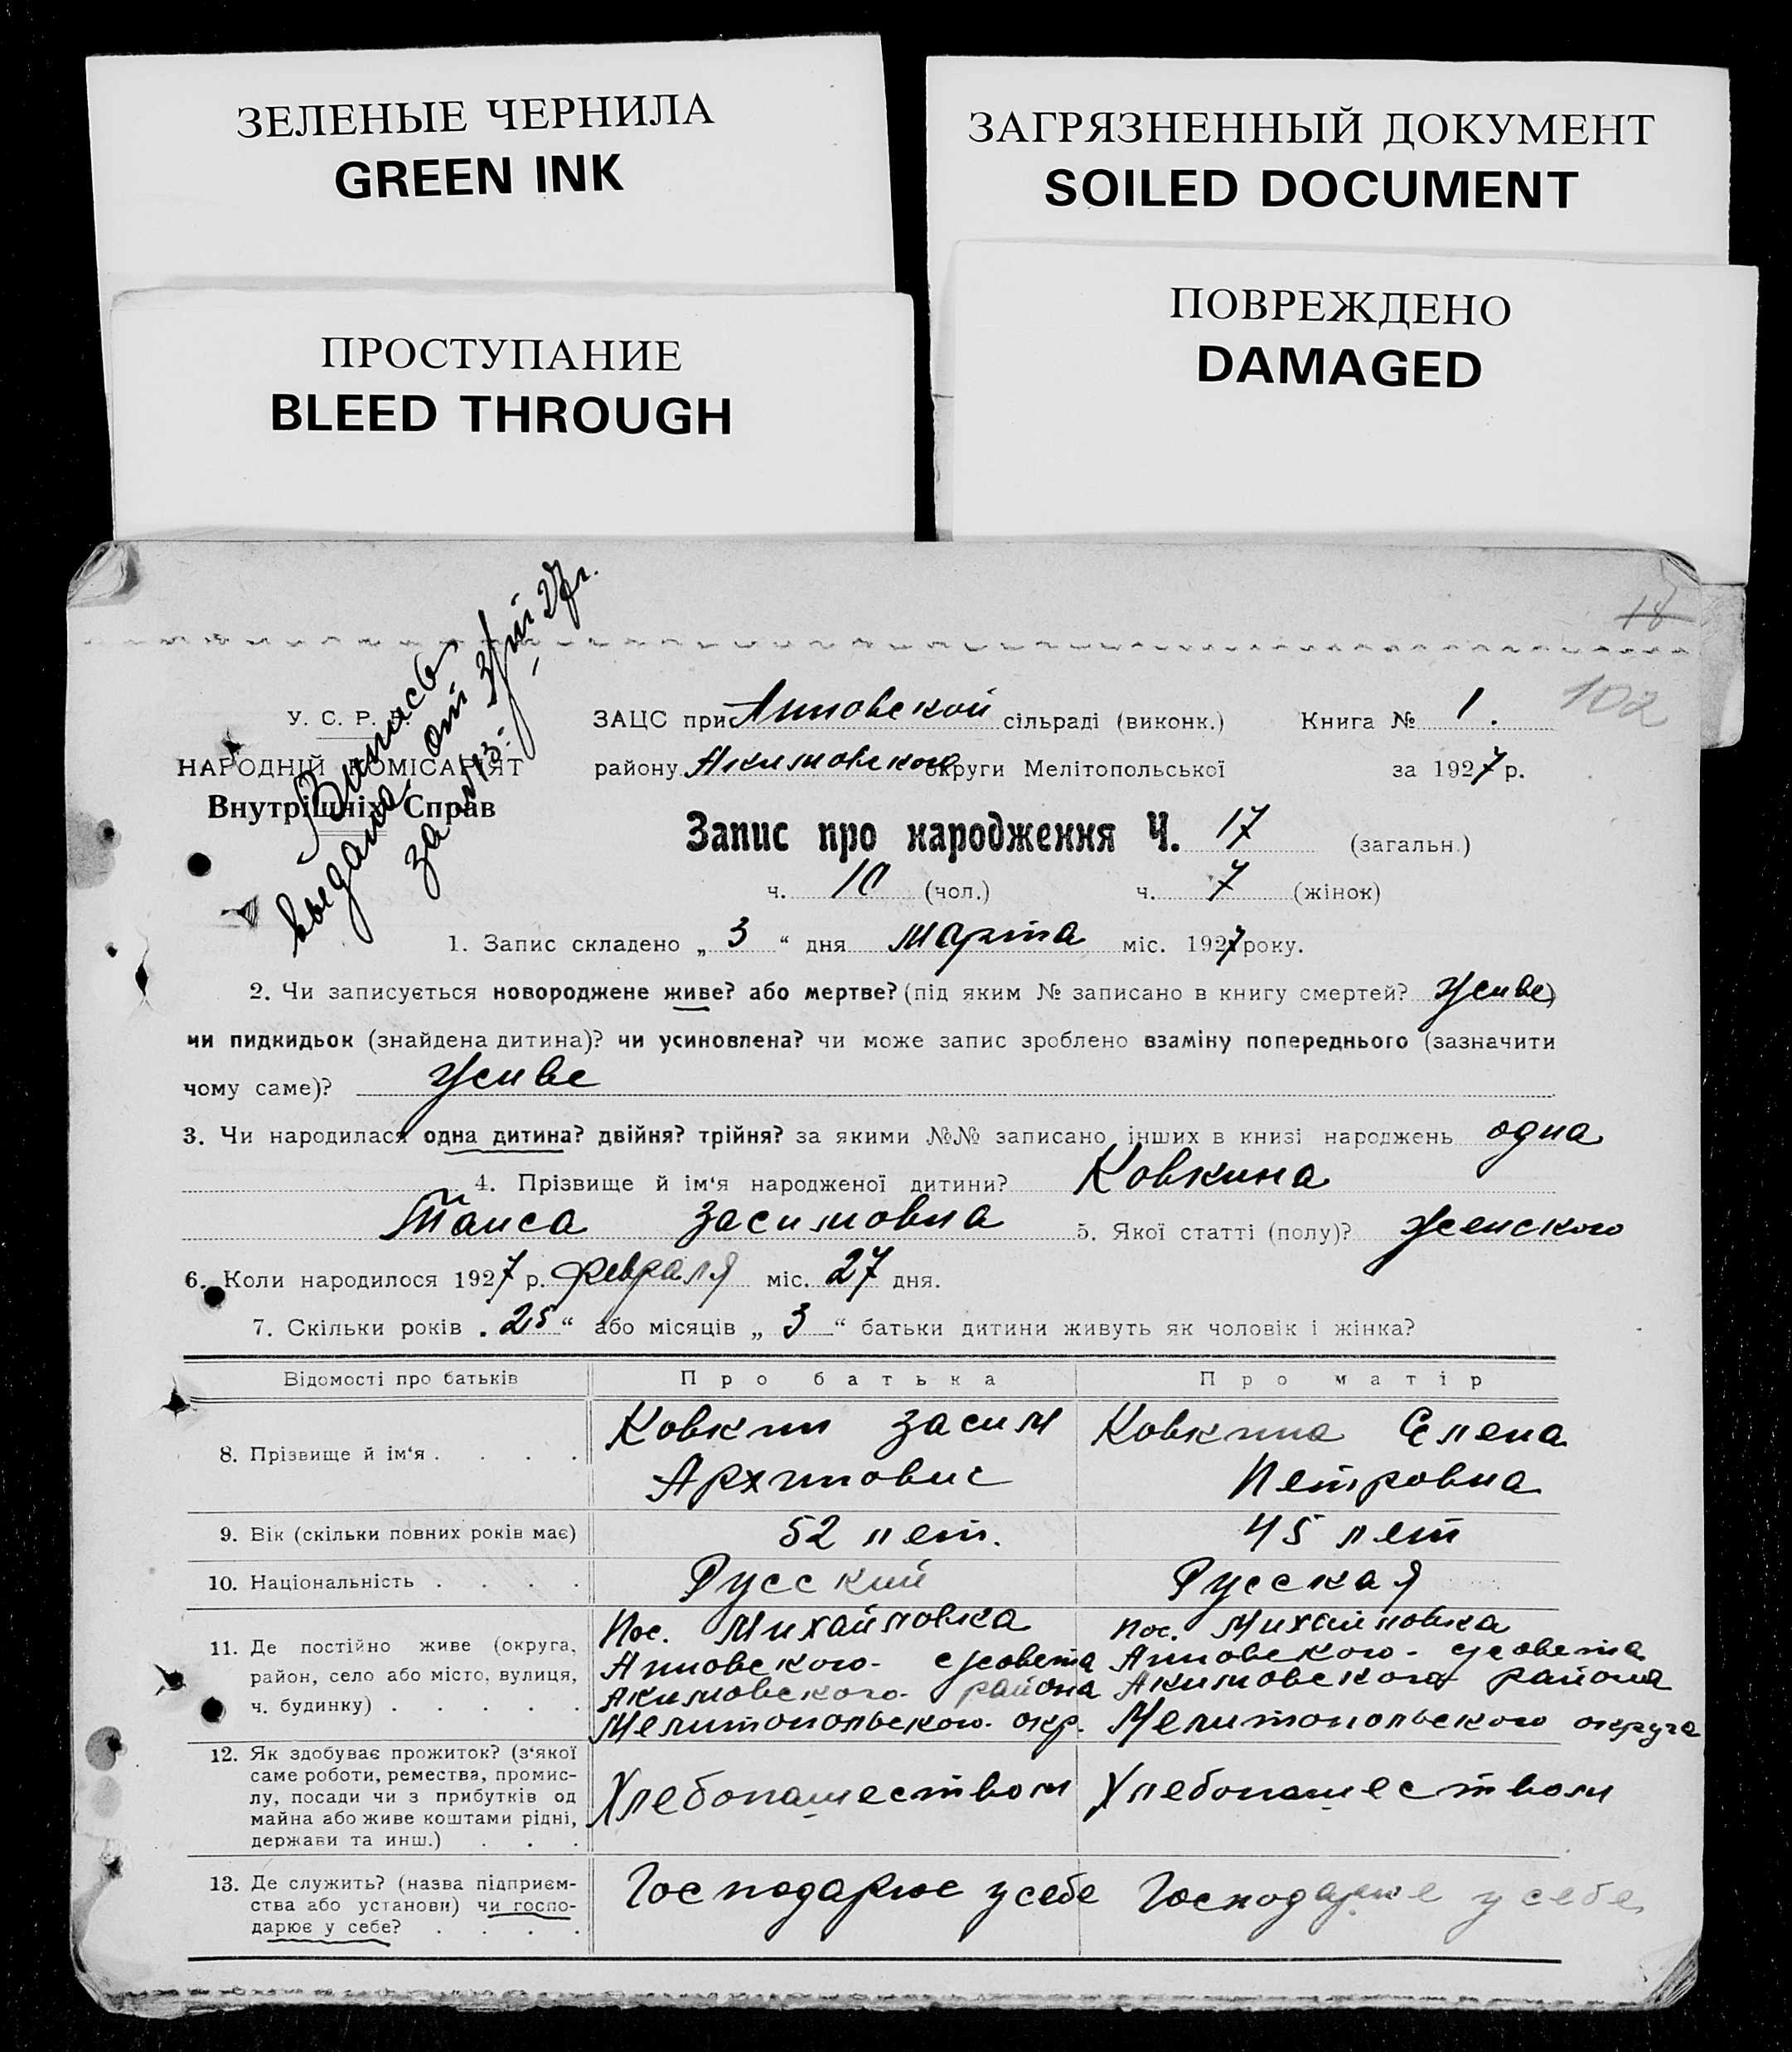 ЗЕЛЕНЫЕ ЧЕРНИЛА
GREEN INK
ЗАГРЯЗНЕННЫЙ ДОКУМЕНТ
SOILED DOCUMENT
ПРОСТУПАНИЕ
BLEED THROUGH
ПОВРЕЖДЕНО
DAMAGED
18
102
Выпись
выдана от 3/III 27 г.
за № 13
У. С. Р. Р.
НАРОДНІЙ КОМІСАРІЯТ
Внутрішніх Справ
ЗАЦС при Анновской сільраді (виконк.) Книга № 1.
району Акимовского округи Мелітопольської за 1927 р.
Запис про народження Ч. 17 (загальн.)
ч. 10 (чол.) ч. 7 (жінок)
1. Запис складено „ 3 “ дня марта міс. 1927 року.
2. Чи записується новороджене живе? або мертве? (під яким № записано в книгу смертей? живе)
чи пидкидьок (знайдена дитина)? чи усиновлена? чи може запис зроблено взаміну попереднього (зазначити
чому саме)? живе
3. Чи народилася одна дитина? двійня? трійня? за якими №№ записано інших в книзі народжень одна
4. Прізвище й ім‘я народженої дитини? Ковкина
Таиса Засимовна 5. Якої статті (полу)? женского
6. Коли народилося 1927 р. февраля міс. 27 дня.
7. Скільки років „ 25 “ або місяців „ 3 “ батьки дитини живуть як чоловік і жінка?
Відомості про батьків Про батька Про матір
8. Прізвище й ім‘я . . . .
Ковкин Засим
Архипович
Ковкина Елена
Петровна
9. Вік (скільки повних років має) 52 лет. 45 лет
10. Національність . . . . Русский Русская
11. Де постійно живе (округа,
район, село або місто, вулиця,
ч. будинку) . . . . .
Пос. Михайловка
Анновского с/совета
Акимовского района
Мелитопольского окр.
Пос. Михайловка
Анновского с/совета
Акимовского района
Мелитопольского округа
12. Як здобуває прожиток? (з‘якої
саме роботи, ремества, промис-
лу, посади чи з прибутків од
майна або живе коштами рідні,
держави та инш.) . . .
Хлебопашеством
Хлебопашеством
13. Де служить? (назва підприєм-
ства або установи) чи госпо-
дарює у себе? . . . .
Господарює у себе
Господарює у себе